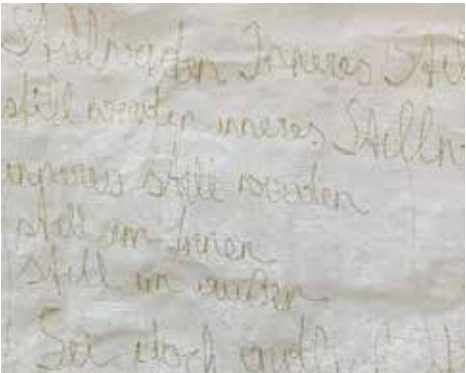 Stillwerden Inneres Still
still werden inneres Stillw
inneres still werden
still im Innen
Still im außen
Sei doch endlich st